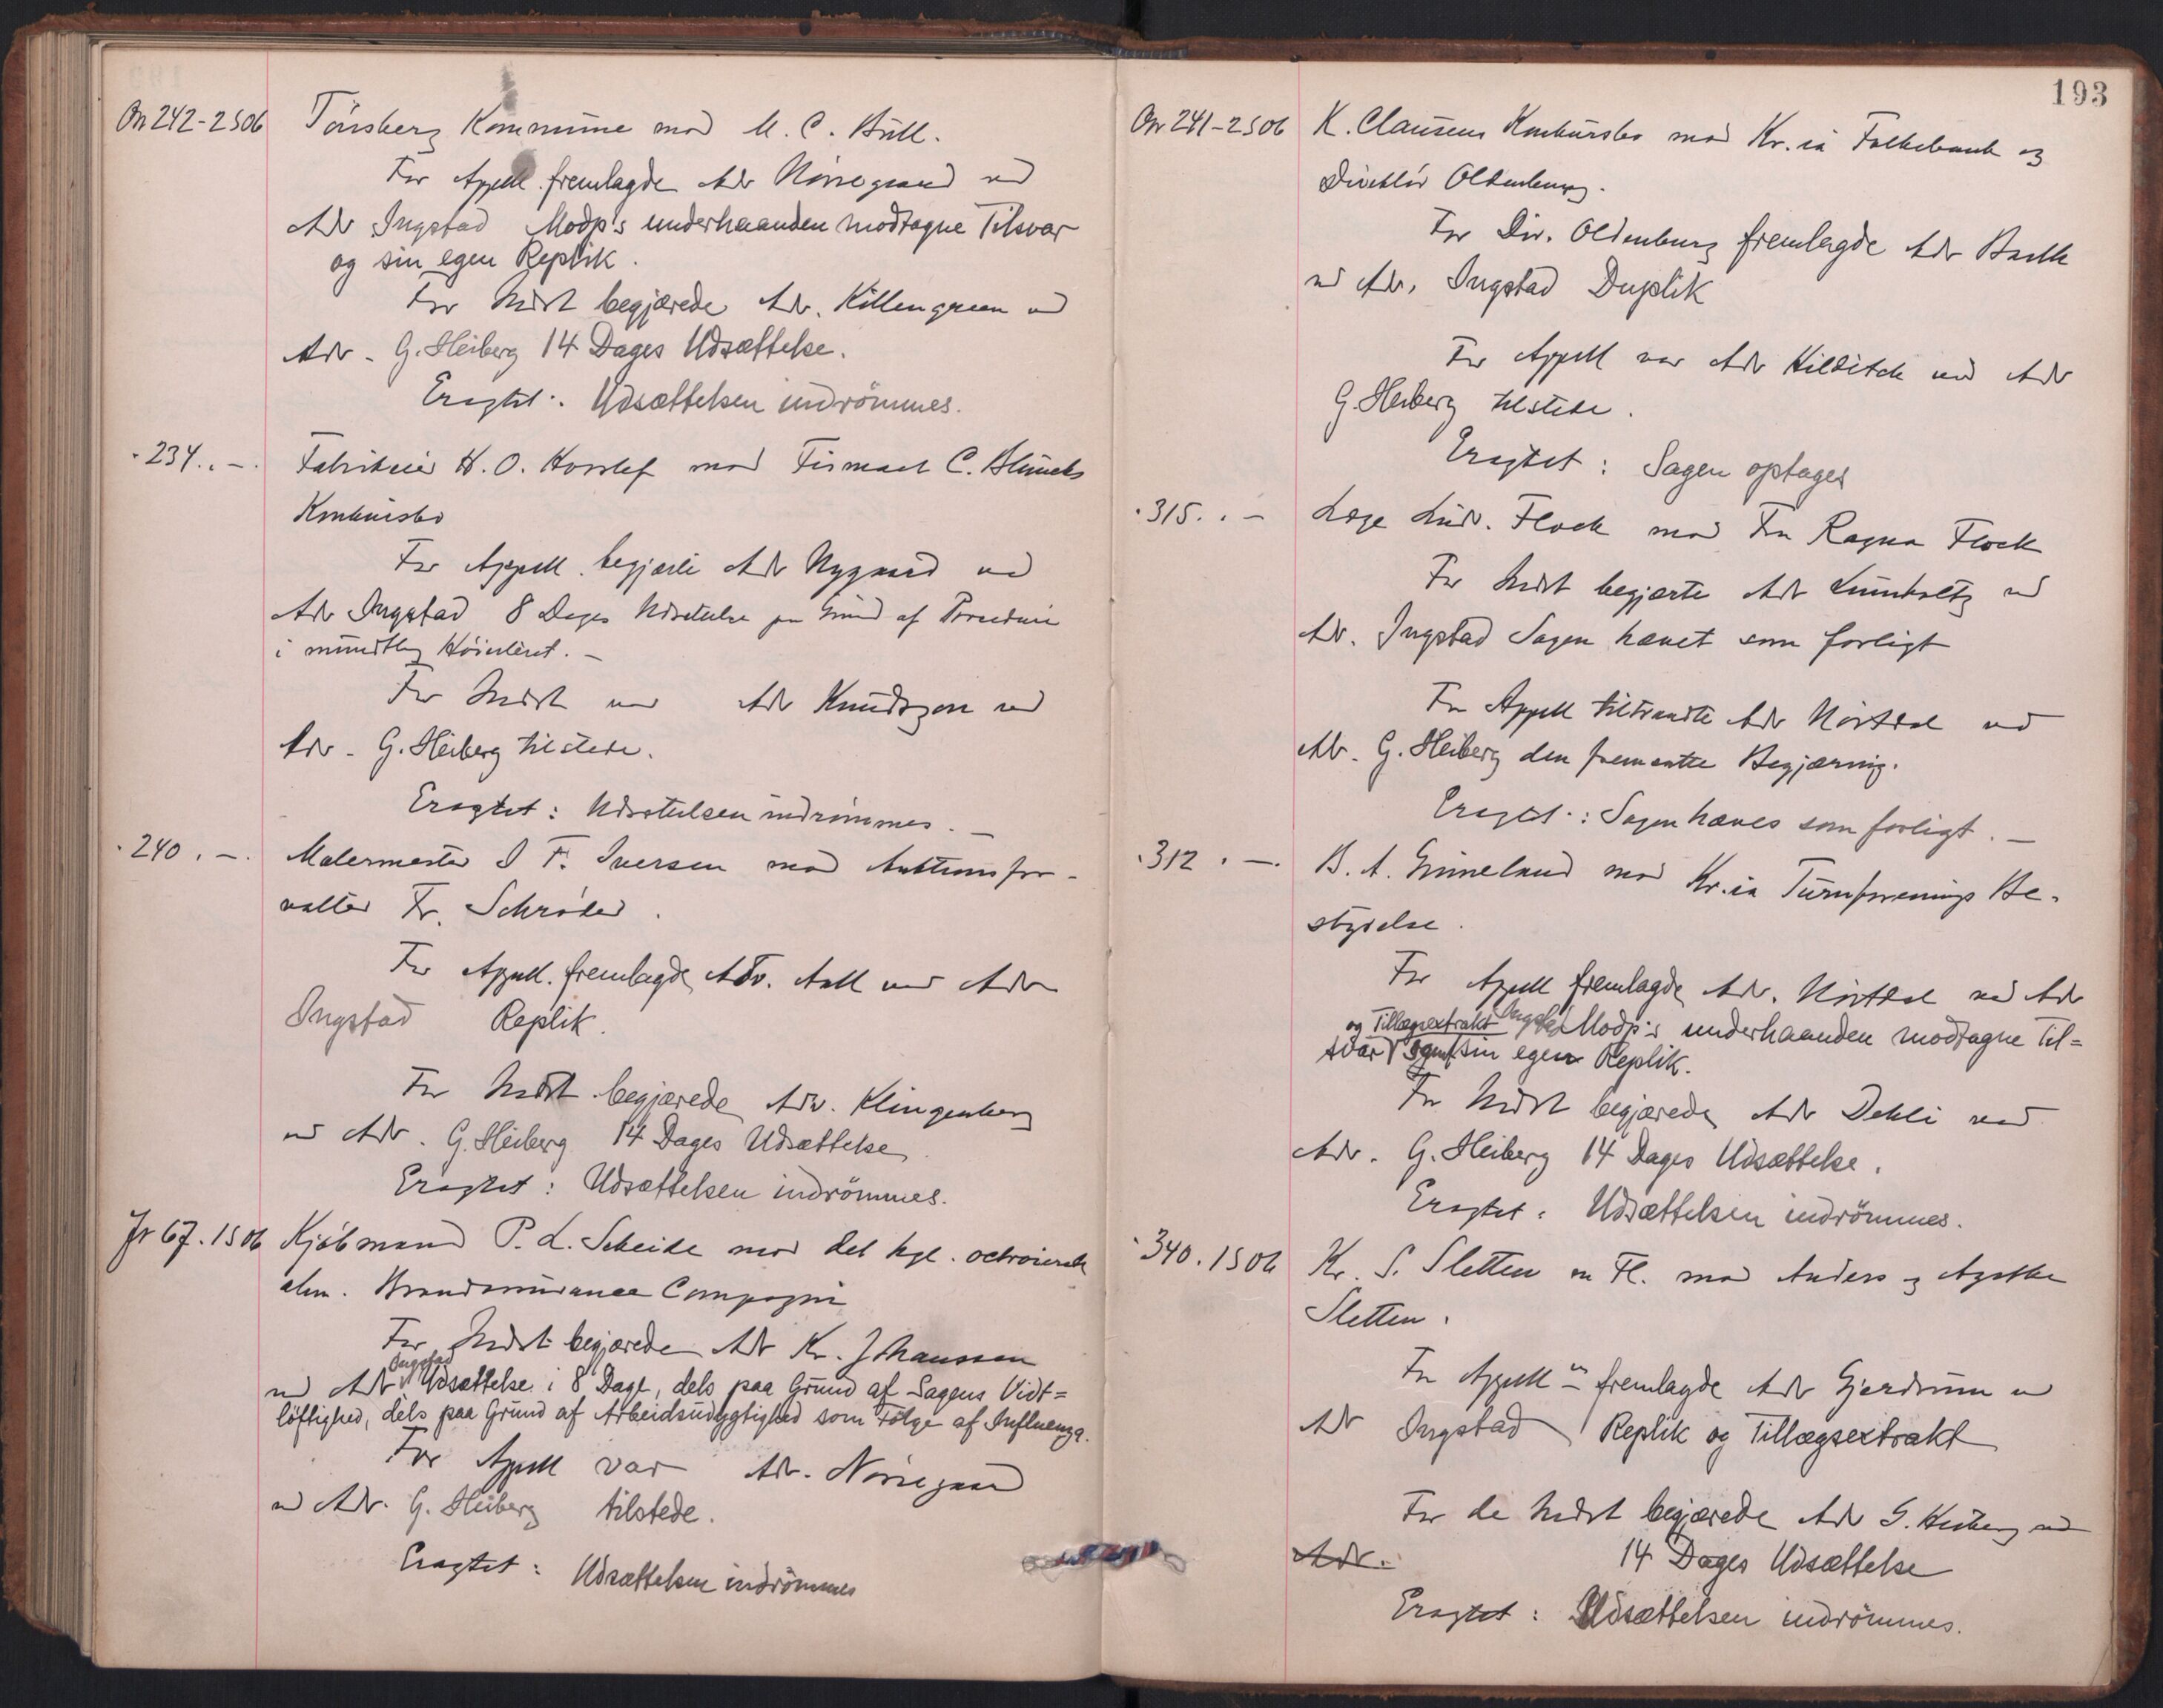 On 242-2 S 06 Tönsberg Kommune mod M. C. Bull.
For Appell. fremlagde Adv Nörregaard ved
Adv Ingstad Modp's underhaanden modtagne Tilsvar
og sin egen Replik.
For Indst begjærede Adv. Killengreen ved
Adv. G. Heiberg 14 Dages Udsættelse.
Eragtet: Udsættelsen indrömmes.
" 234 " - " Fabrikeier H. O. mod Firmaet C.
Konkursbo
For Appell. begjærte Adv Nygaard ved
Adv Ingstad 8 Dages Udsættelse paa Grund af Procedure
i mundtlig Höiesteret. -
For Indst var Adv Knudtzon ved
Adv. G. Heiberg tilstede.
Eragtet: Udsættelsen indrömmes. -
" 240 " - " Malermester I F. Iversen mod Auktionsfor-
valter Fr. Schröder.
For Appell. fremlagde Adv. Aall ved Adv
Ingstad Replik.
For Indst begjærede Adv. Klingenberg
ved Adv. G. Heiberg 14 Dages Udsættelse
Eragtet: Udsættelsen indrömmes.
Fr 67. 1 S 06 Kjöbmand P. L. Scheide mod det kgl. octroierede
alm. Brandassurance Compagni
For Indst begjærede Adv Kr. Johanssen
ved Adv Ingstad Udsættelse i 8 Dage, dels paa Grund af Sagens Vidt=
löftighed, dels paa Grund af Arbeidsudygtighed som Fölge af Influenza.
For Appell var Adv. Nörregaard
ved Adv. G. Heiberg tilstede.
Eragtet: Udsættelsen indrömmes
193
On 241-2 S 06 K. Clausens Konkursbo mod Kr.ia Folkebank og
Direktör Oldenburg.
For Dir. Oldenburg fremlagde Adv
ved Adv. Ingstad Duplik
For Appell var Adv Hilditch ved Adv
G. Heiberg tilstede.
Eragtet: Sagen optages
" 315 " - Læge Ludv. Flock mod Fru Ragna Flock
For Indst begjærte Adv Lumholtz ved
Adv. Ingstad Sagen hævet som forligt
For Appell tiltraadte Adv Hörtdal ved
Adv. G. Heiberg den fremsatte Begjæring.
Eragtet: Sagen hæves som forligt. -
" 312 " - " B. A. Grimeland mod Kr.ia Turnforenings Be-
styrelse.
For Appell fremlagde Adv. Hörtdal ved Adv
Ingstad Modp's underhaanden modtagne Til=
svar og Tillægsextrakt samt sin egen Replik.
For Indst begjærede Adv Dehli ved
Adv. G. Heiberg 14 Dages Udsættelse.
Eragtet: Udsættelsen indrömmes.
" 340. 1 S 06 Kr. S. Sletten m Fl. mod Anders og Agathe
Sletten.
For Appell fremlagde Adv Gjerdrum ved
Adv Ingstad Replik og Tillægsextrakt
For de Indst begjærede Adv G. Heiberg ved
Adv. 14 Dages Udsættelse
Eragtet: Udsættelsen indrömmes.